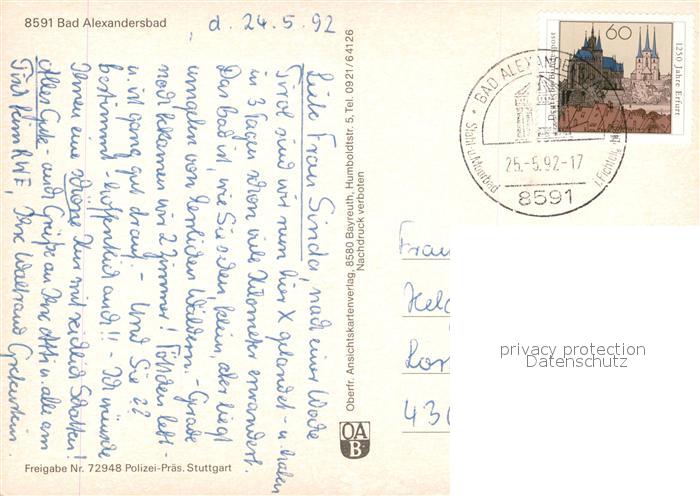 8591 Bad Alexandersbad
d. 24.5.92
Liebe Frau Sinder, nach einer Woche
Tirol sind wir nun hier X gelandet - u. haben
in 3 Tagen schon viele Kilometer erwandert.
Das Bad ist, wie Sie sehen, klein, aber liegt
umgeben von herrlichen Wäldern. - Grade
noch bekamen wir 2 Zimmer!
u. ist ganz gut drauf. - Und Sie ??
bestimmt - hoffentlich auch!! - Ich wünsche
Ihnen eine schöne Kur mit reichlich Schatten!
Alles Gute - auch Grüße an u. alle am
beim RWE, Ihre Waltraud
Oberfr. Ansichtskartenverlag, 8580 Bayreuth, Humboldtstr. 5, Tel. 0921/64126
Nachdruck verboten
OA
B
Freigabe Nr. 72948 Polizei-Präs. Stuttgart
60
Deutsche Bundespost
1250 Jahre Erfurt
BAD ALEXANDERS
Stahl- u. Moorbad
i. Fichtelg
25.-5.92-17
8591
Frau
Held
430
privacy protection
Datenschutz